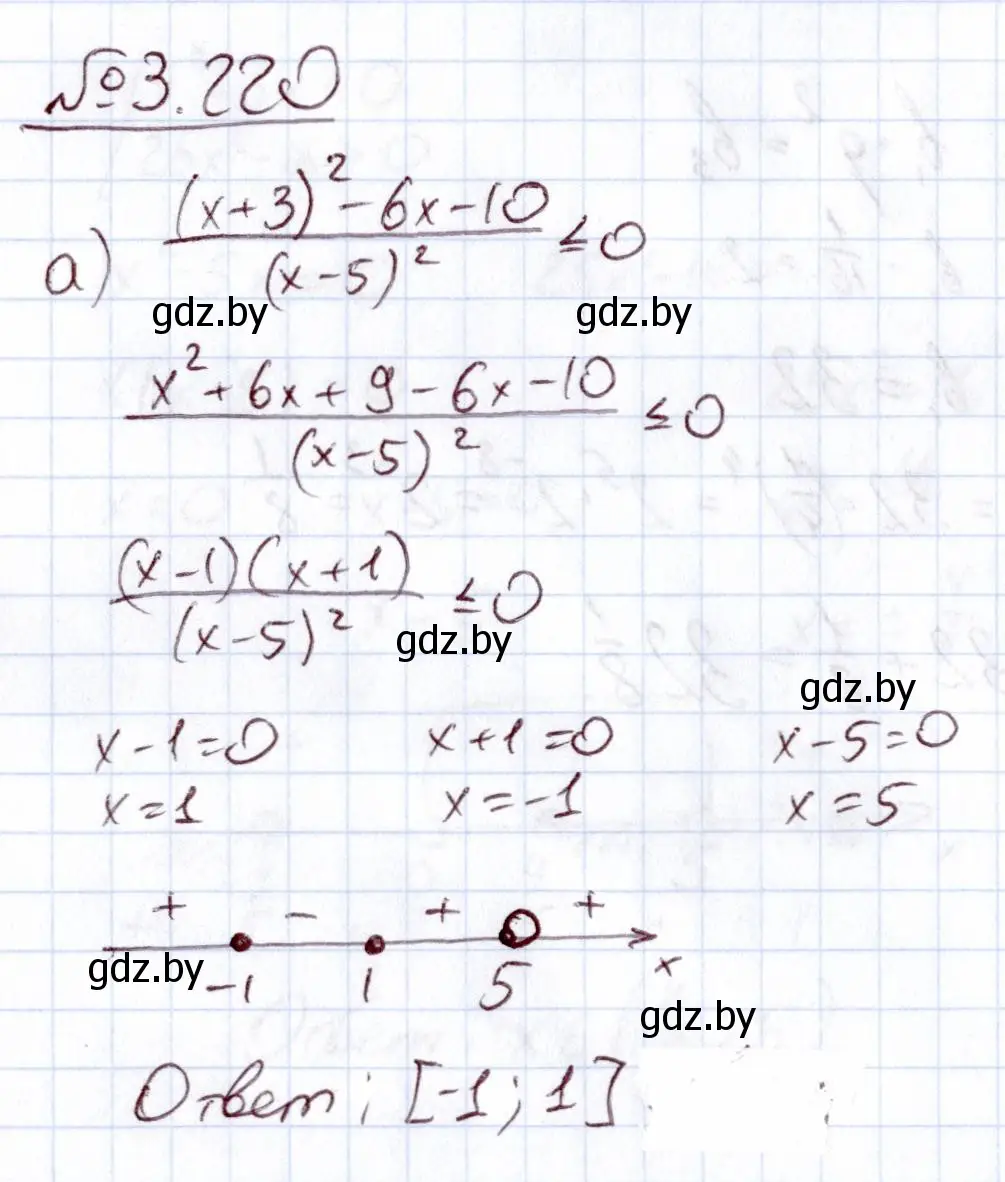 №3.220
а) ((x+3)² - 6x - 10)/(x-5)² ≤ 0
gdz.by gdz.by
(x² + 6x + 9 - 6x - 10)/(x-5)² ≤ 0
((x-1)(x+1))/(x-5)² ≤ 0
gdz.by
gdz.by
x - 1 = 0 x + 1 = 0 x - 5 = 0
x = 1 x = -1 x = 5
+ - + +
gdz.by -1 1 5 x
gdz.by
Ответ; [-1; 1]